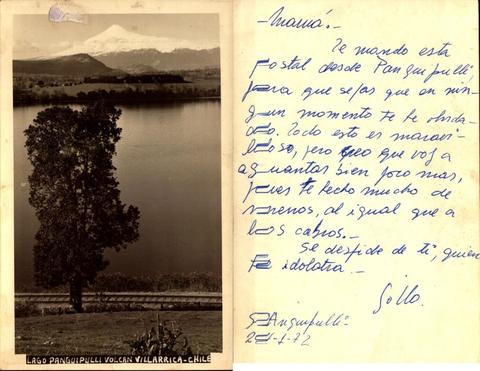 LAGO PANGUIPULLI VOLCAN VILLARRICA-CHILE
-Mamá.-
Te mando esta
postal desde Panguipulli,
para que sepas que en nin-
gun momento te he olvida-
do. Todo esto es maravi-
lloso, pero creo que voy a
aguantar bien poco mas,
pues te hecho mucho de
menos, al igual que a
los cabros.-
Se despide de ti, quien
te idolatra.-
Panguipulli-
72